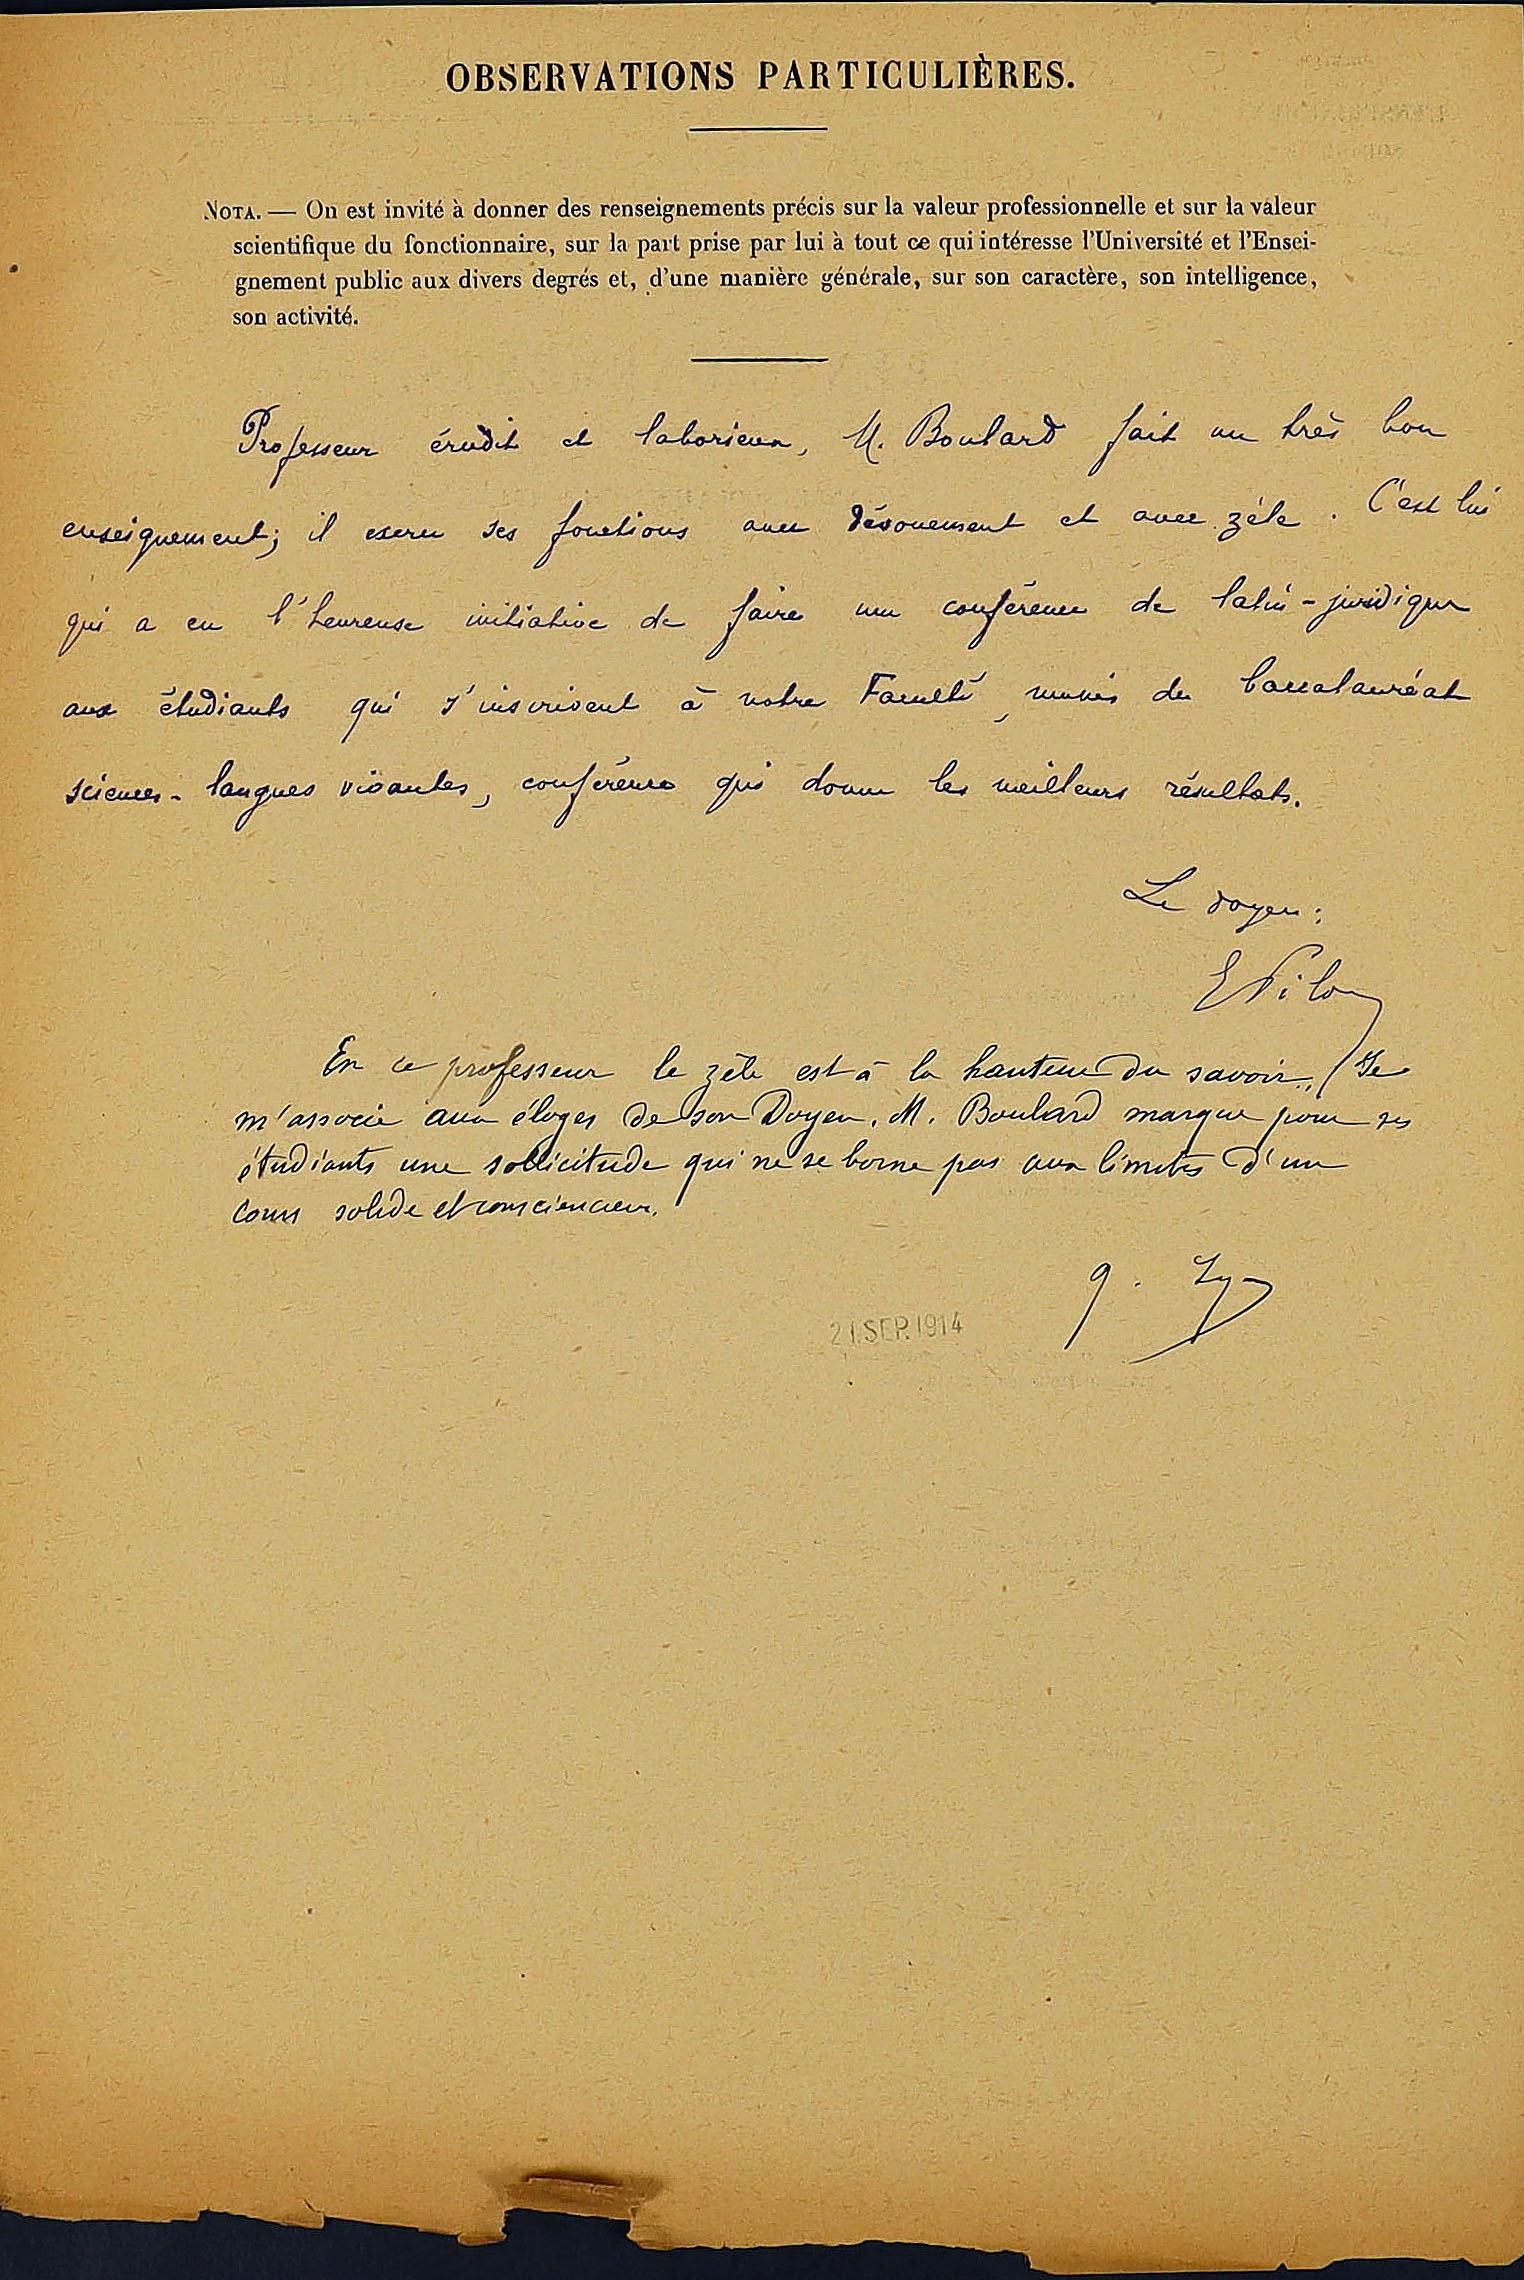 OBSERVATIONS PARTICULIÈRES.
NOTA. — On est invité à donner des renseignements précis sur la valeur professionnelle et sur la valeur
scientifique du fonctionnaire, sur la part prise par lui à tout ce qui intéresse l'Université et l'Ensei-
gnement public aux divers degrés et, d'une manière générale, sur son caractère, son intelligence,
son activité.
Professeur érudit et laborieux, M. Boulard fait un très bon
enseignement; il exerce ses fonctions avec dévouement et avec zèle. C'est lui
qui a eu l'heureuse initiative de faire une conférence de latin-juridique
aux étudiants qui s'inscrivent à notre Faculté, munis du baccalauréat
sciences-langues vivantes, conférence qui donne les meilleurs résultats.
Le doyen:
En ce professeur le zèle est à la hauteur du savoir. Je
m'associe aux éloges de son Doyen. M. Boulard marque pour ses
étudiants une sollicitude qui ne se borne pas aux limites d'un
cours solide et consciencieux.
21.SEP.1914